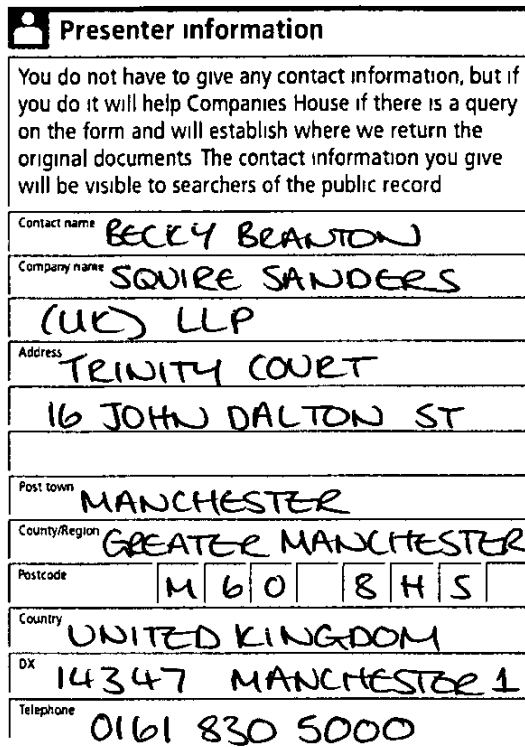 Presenter information
You do not have to give any contact information, but if
you do it will help Companies House if there is a query
on the form and will establish where we return the
original documents The contact information you give
will be visible to searchers of the public record
Contact name BECKY BRANTON
Company name SQUIRE SANDERS
(UK) LLP
Address TRINITY COURT
16 JOHN DALTON ST
Post town MANCHESTER
County/Region GREATER MANCHESTER
Postcode M60 8HS
Country UNITED KINGDOM
DX 14347 MANCHESTER 1
Telephone 0161 830 5000